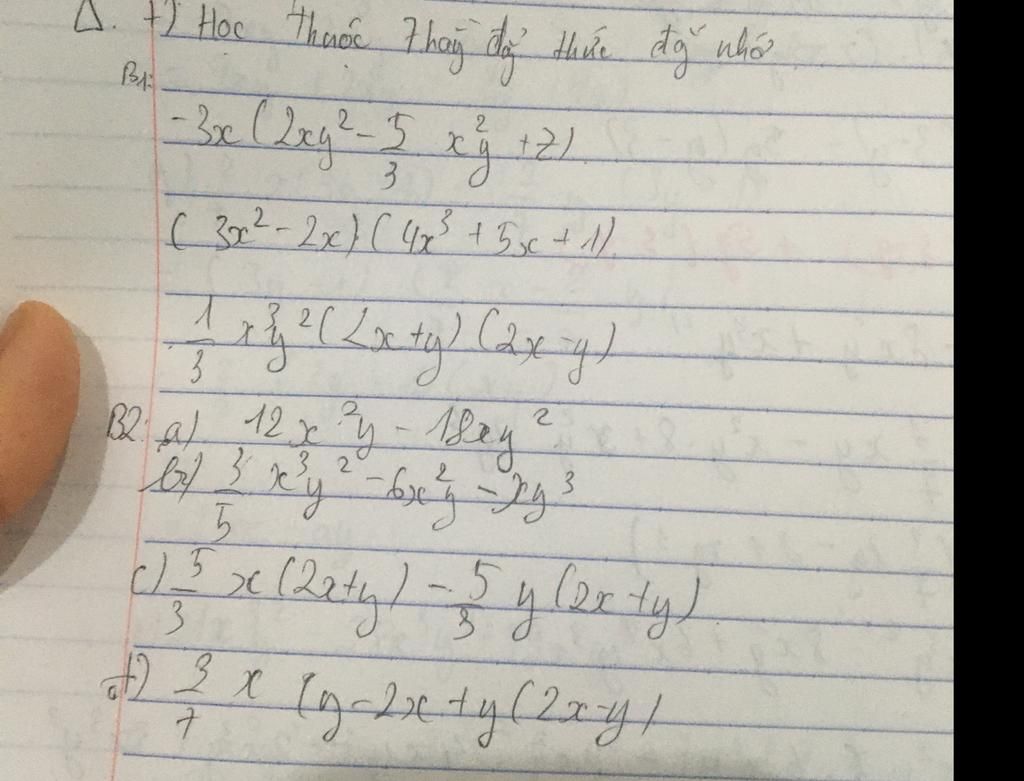 Δ. +) Học thuộc 7 hằng đẳng thức đáng nhớ
B1:
-3x(2xy² - 5/3 x²y + z)
(3x² - 2x)(4x³ + 5x + 1)
1/3 x³y²(2x+y)(2x-y)
B2: a) 12x²y - 18xy²
b) 3/5 x³y² - 6x²y - xy³
c) 5/3 x(2x+y) - 5/3 y(2x+y)
d) 3/7 x (y-2x+y(2x-y)